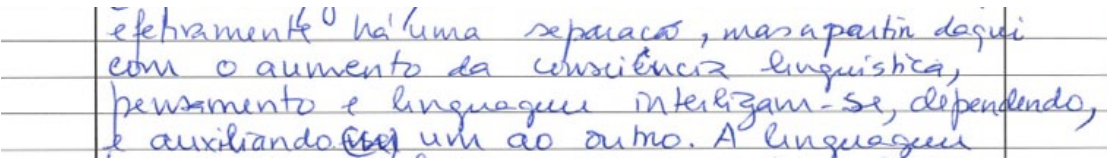 efetivamente há uma separação, mas a partir daqui
com o aumento da consciência linguística,
pensamento e linguagem interligam-se, dependendo,
e auxiliando um ao outro. A linguagem